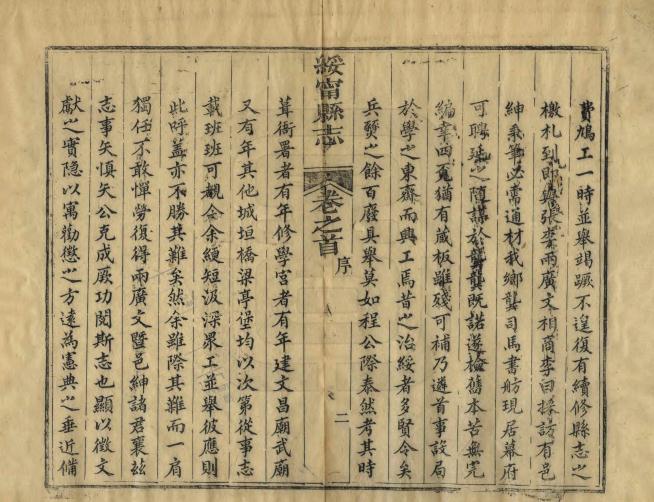 費鳩工一時並舉竭蹶不遑復有續修縣志之
檄札到即與張李兩廣文相商李曰採訪有邑
紳秉筆必需通材我鄉龔司馬書舫現居幕府
可聘延之隨謀於龔龔既諾遂檢舊本苦無完
編幸西寬猶有蔵板雖殘可補乃遴首事設局
於學之東齋而興工焉昔之治綏者多賢令矣
兵燹之餘百廢具舉莫如程公際泰然考其時
綏甯縣志 卷之首 序 二
葺衙署者有年修學宮者有年建文昌廟武廟
又有年其他城垣橋梁亭堡均以次第從事志
載班班可觀今余綆短汲深衆工並舉彼應則
此呼蓋亦不勝其難矣然余雖際其難而一肩
獨任不敢憚勞復得兩廣文暨邑紳諸君襄玆
志事矢慎矢公克成厥功閱斯志也顯以徵文
獻之實隐以寓勸懲之方遠為憲典之垂近備